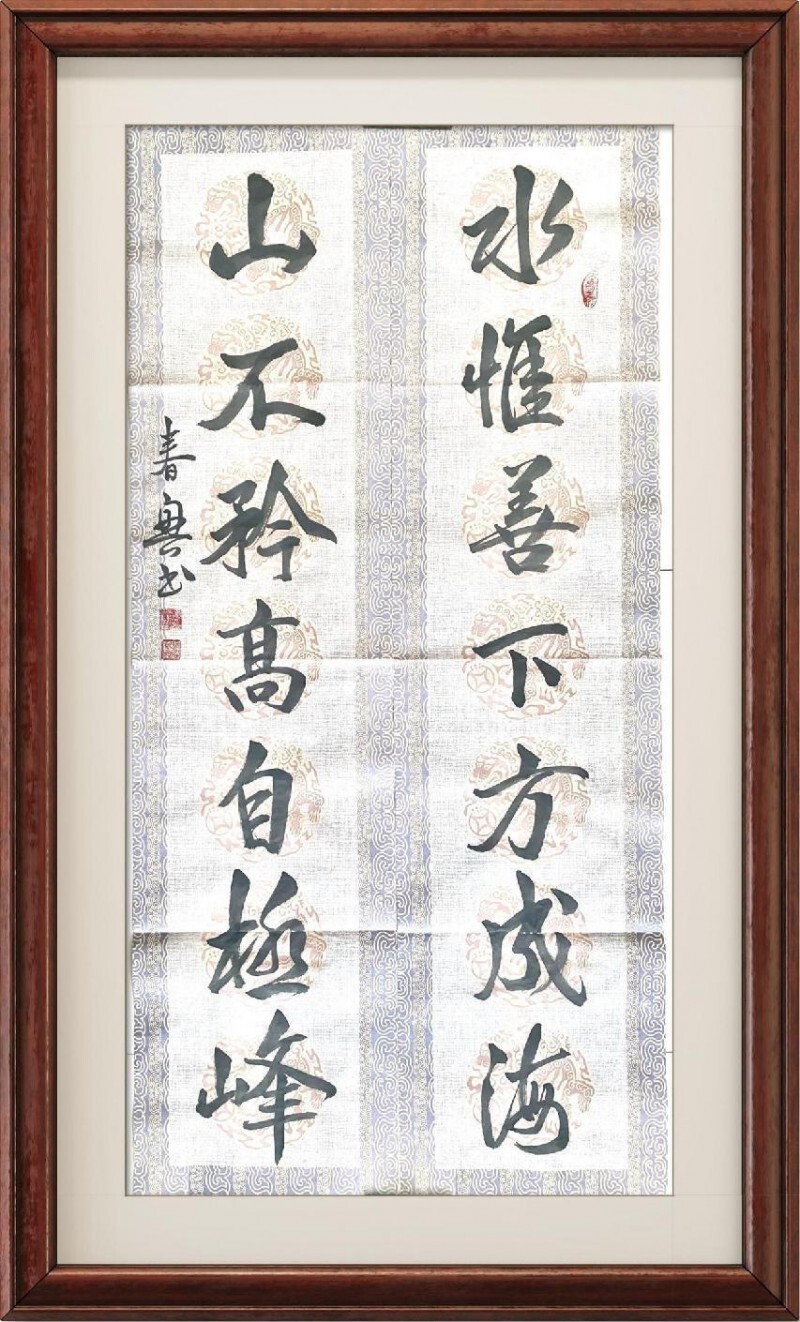 水惟善下方成海
山不矜高自極峰
春興书